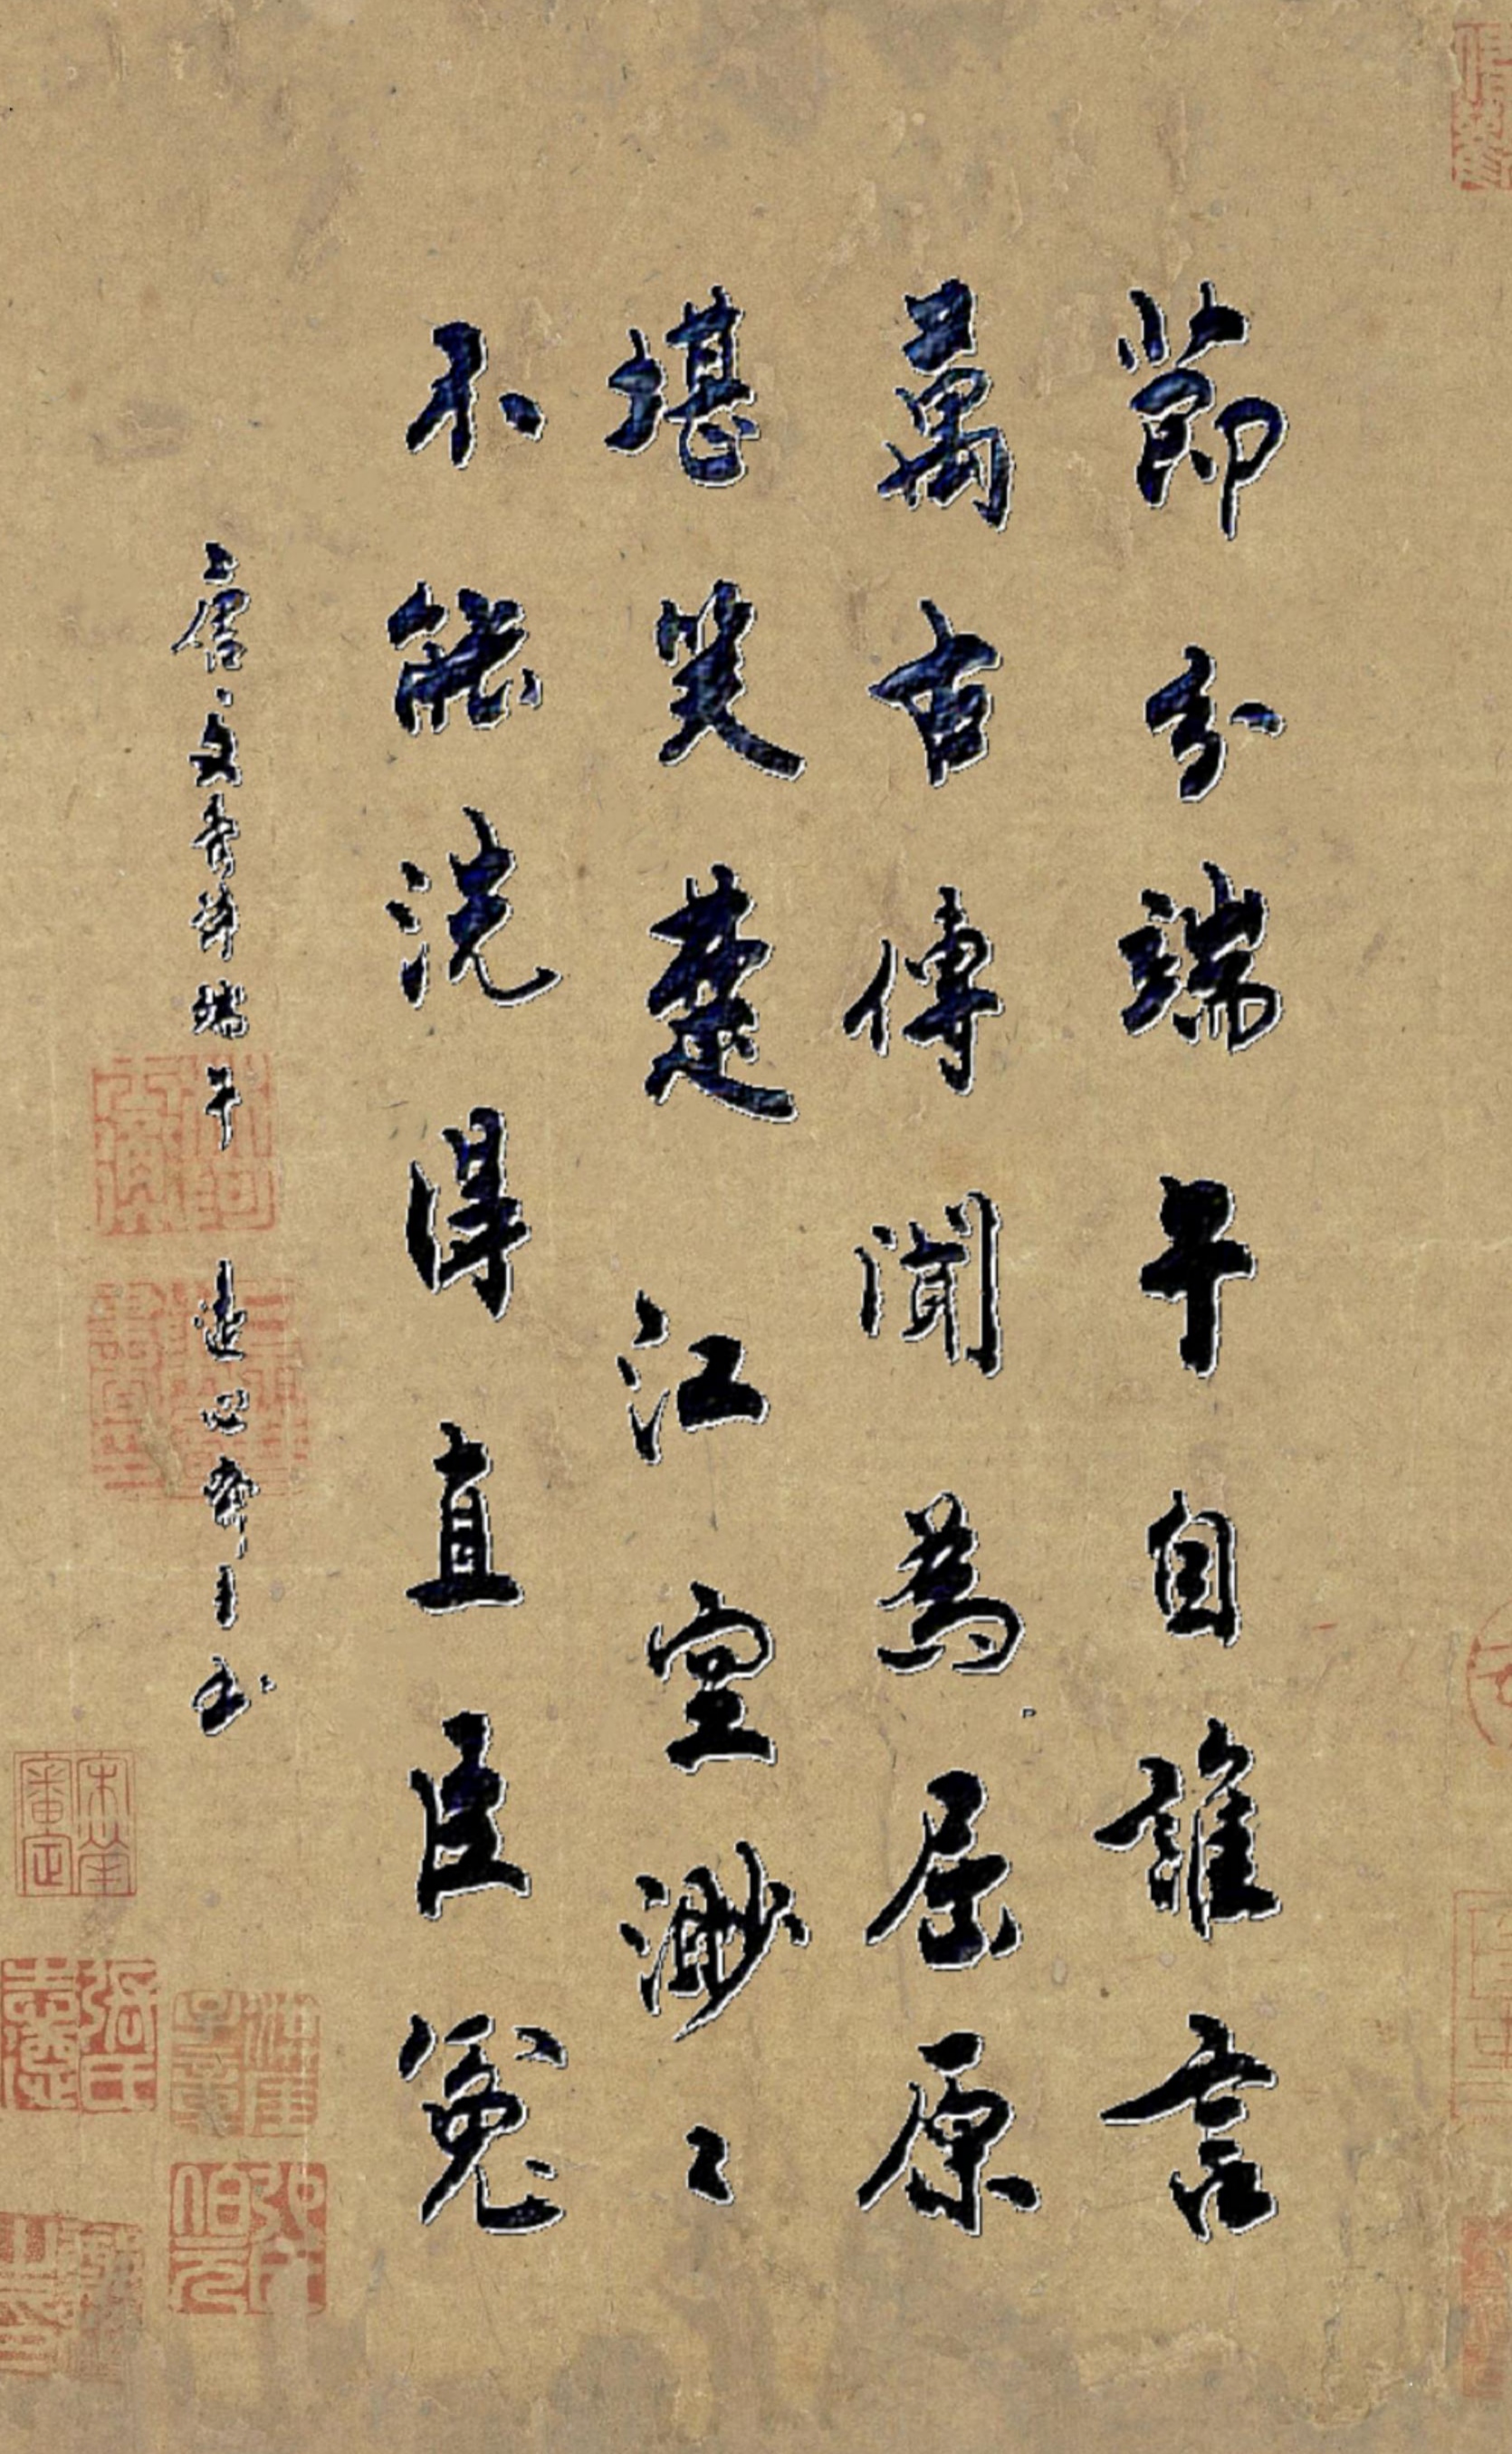 節分端午自誰言
萬古傳聞為屈原
堪笑楚江空渺〻
不能洗得直臣冤
唐·文秀詩端午 遠心齋主书